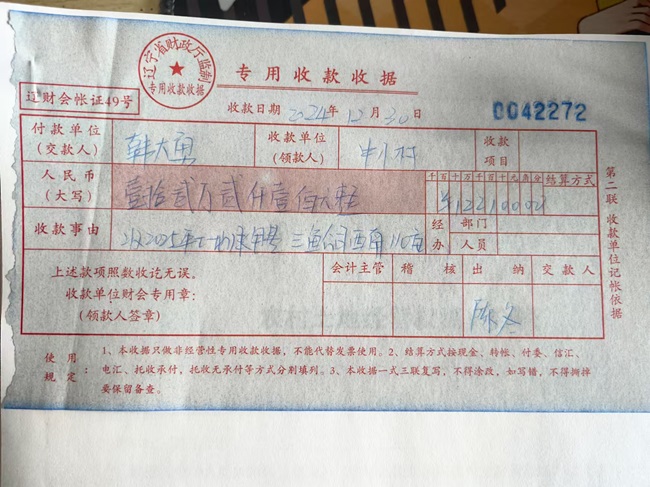 辽宁省财政厅监制
专用收款收据
专用收款收据
辽财会帐证49号
收款日期 2024年12月30日
0042272
付款单位
(交款人)
韩大勇
收款单位
(领款人)
村
收款
项目
人民币
(大写)
壹拾贰万贰仟壹佰元整
千百十万千百十元角分
¥12210000
结算方式
收款事由
2025年
三鱼
西角110亩
经办
部门
人员
上述款项照数收讫无误。
收款单位财会专用章:
(领款人签章)
会计主管
稽核
出纳
交款人
陈冬
第二联 收款单位记帐依据
使用规定:
1、本收据只做非经营性专用收款收据,不能代替发票使用。2、结算方式按现金、转帐、付委、信汇、
电汇、托收承付,托收无承付等方式分别填列。3、本收据一式三联复写,不得涂改,如写错,不得撕掉
要保留备查。